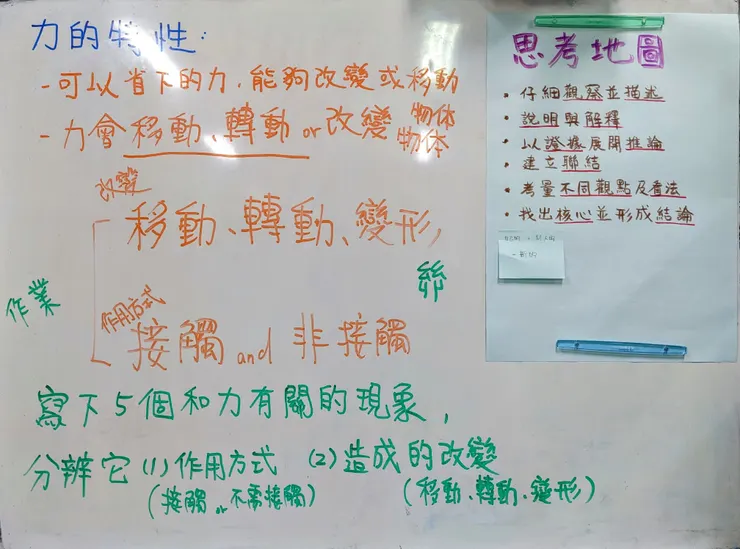 力的特性：
- 可以省下的力，能夠改變或移動物体
- 力會移動、轉動 or 改變物体
改變
移動、轉動、變形，
作用方式
接觸 and 非接觸
作業
寫下5個和力有關的現象，
分辨它 (1) 作用方式 (2) 造成的改變
(接觸 or 不需接觸) (移動、轉動、變形)
思考地圖
• 仔細觀察並描述
• 說明與解釋
• 以證據展開推論
• 建立聯結
• 考量不同觀點及看法
• 找出核心並形成結論